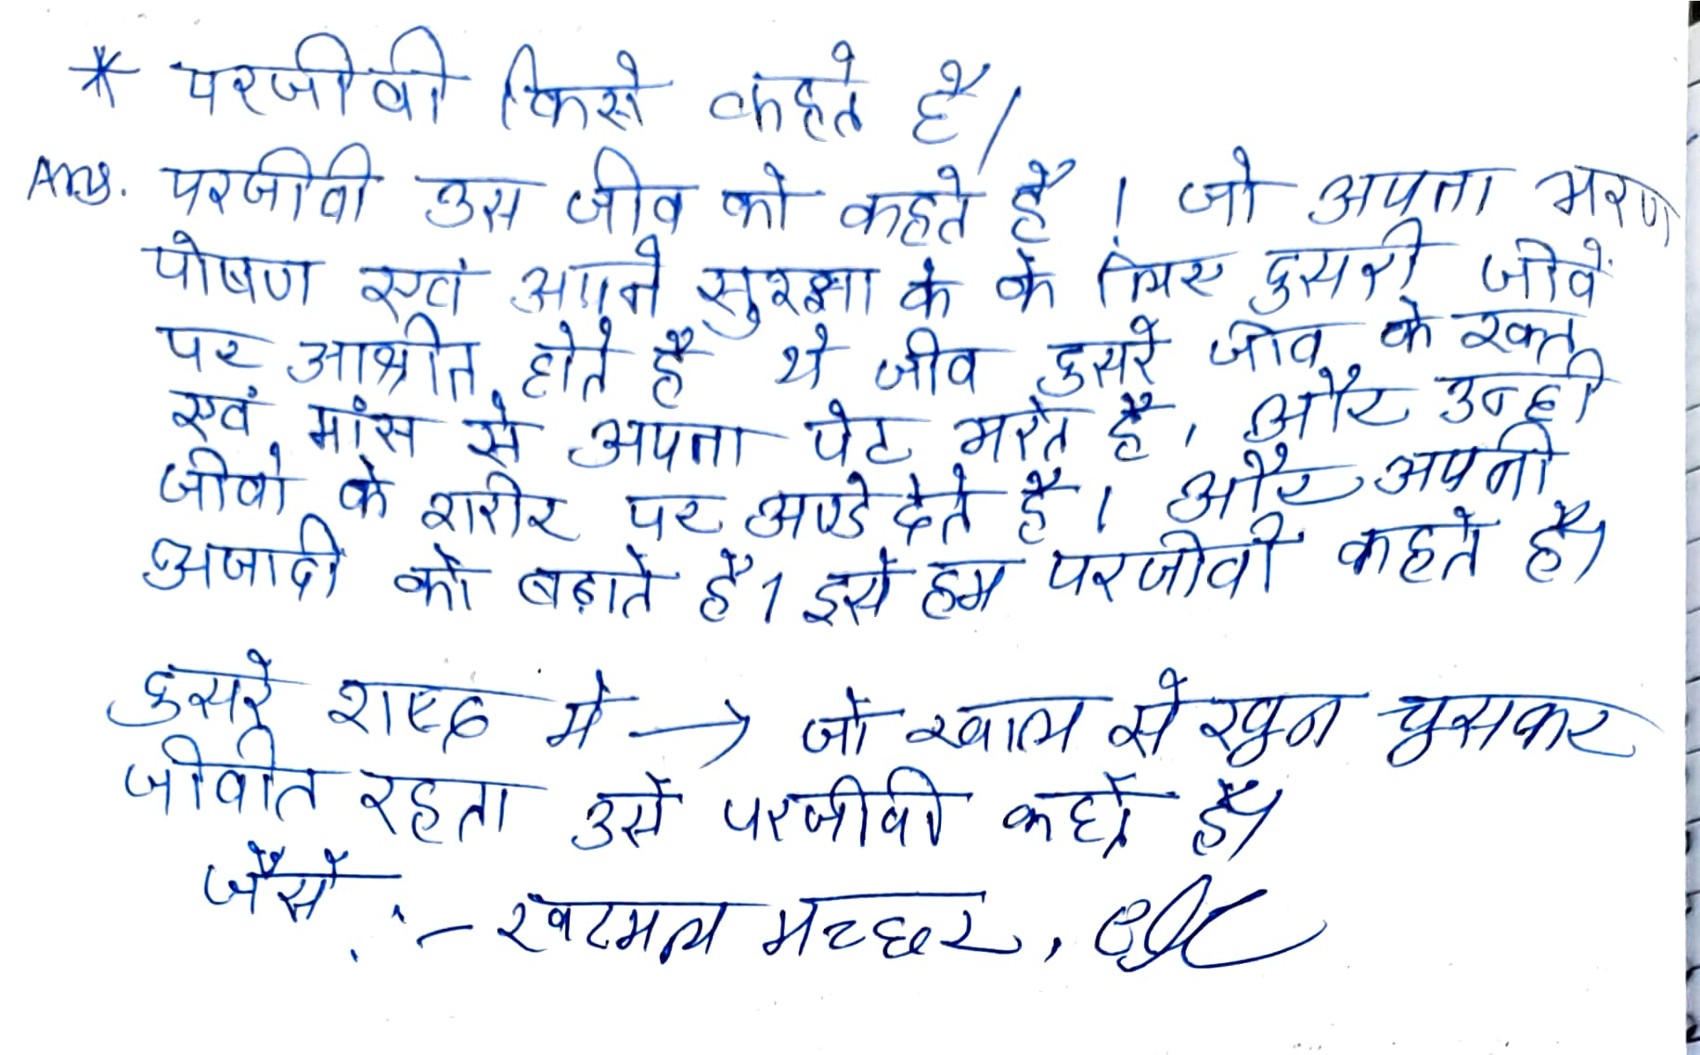 * परजीवी किसे कहते है।
Ans. परजीवी उस जीव को कहते है । जो अपना भरण
पोषण एवं अपने सुरक्षा के के लिए दुसरी जीवें
पर आश्रीत होते है ये जीव दुसरे जीव के रक्त
एवं मांस से अपना पेट भरते है, और उन्ही
जीवो के शरीर पर अण्डे देते है। और अपनी
अजादी को बढ़ाते है। इसे हम परजीवी कहते है।
दुसरे शब्द मे → जो खाल से खुन चुसकर
जीवीत रहता उसे परजीवी कहते है।
जैसे :- खटमल मच्छर, etc